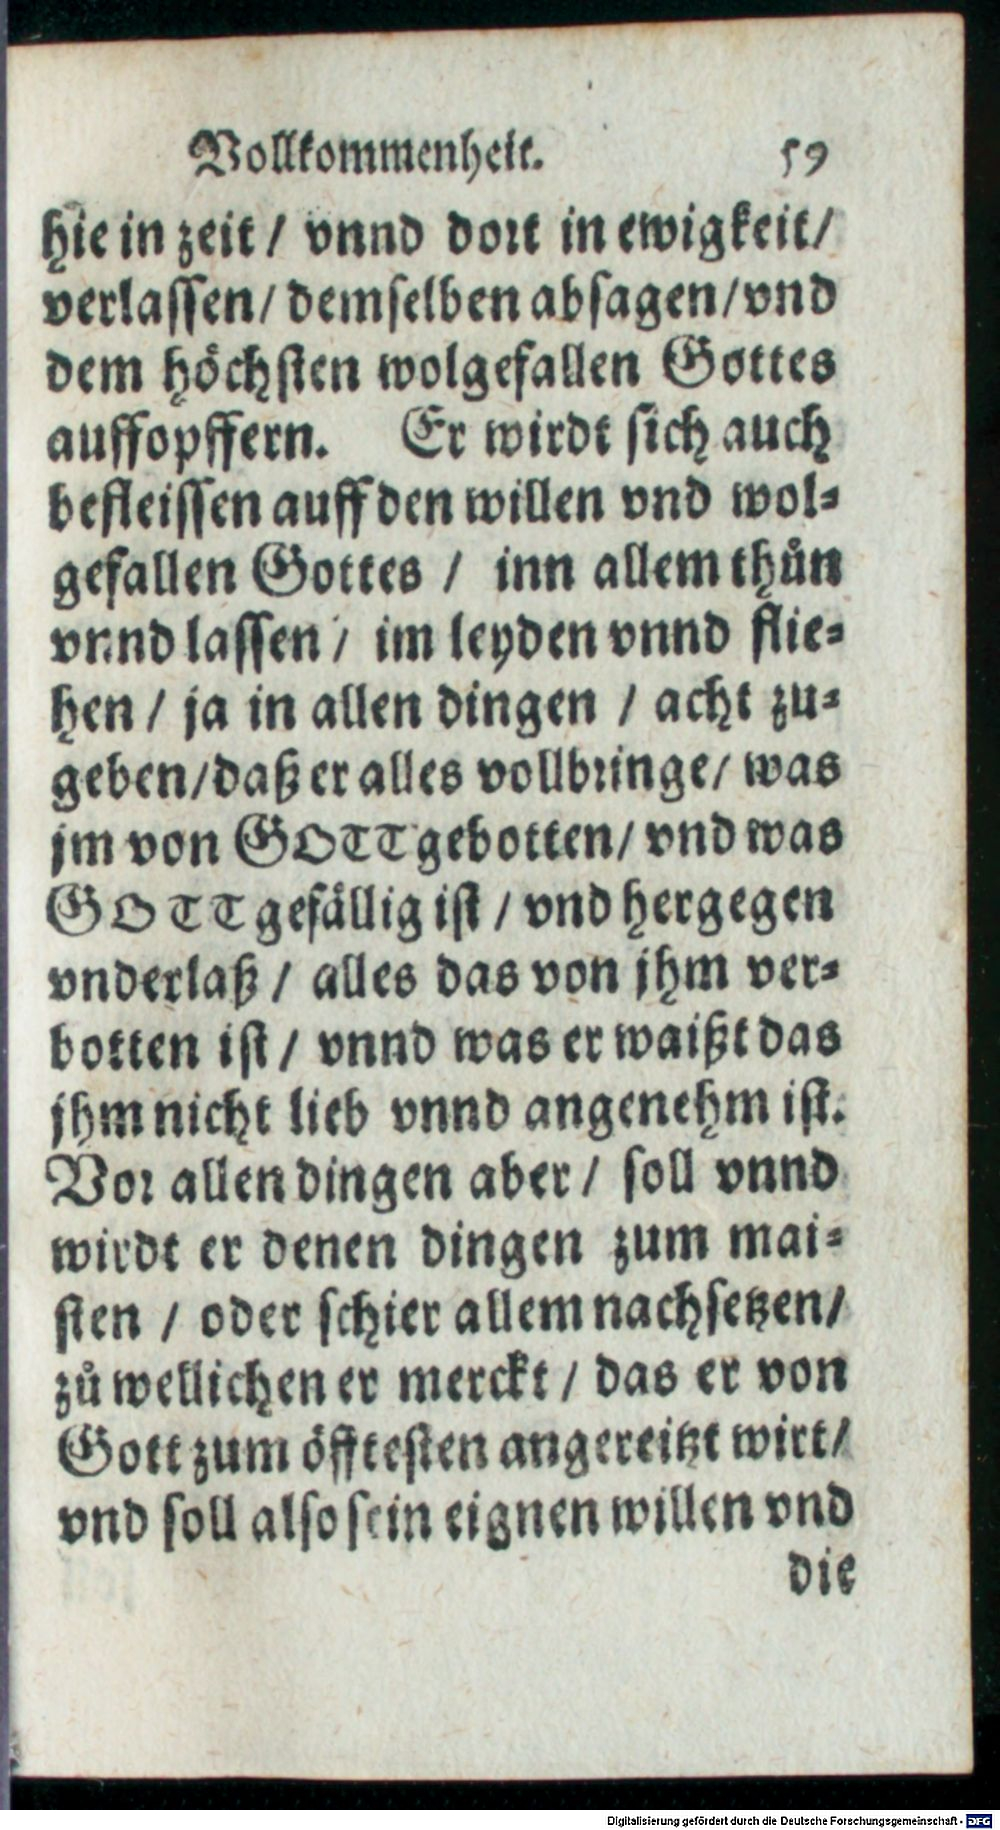 Vollkommenheit. 59
hie in zeit / vnnd dort in ewigkeit/
verlassen/ demselben absagen/vnd
dem höchsten wolgefallen Gottes
auffopffern. Er wirdt sich auch
befleissen auff den willen vnd wol-
gefallen Gottes / inn allem thůn
vnnd lassen / im leyden vnnd flie-
hen / ja in allen dingen / acht zu-
geben/daß er alles vollbringe/ was
jm von GOTT gebotten/ vnd was
GOTT gefällig ist / vnd hergegen
vnderlaß / alles das von jhm ver-
botten ist / vnnd was er waißt das
jhm nicht lieb vnnd angenehm ist.
Vor allen dingen aber / soll vnnd
wirdt er denen dingen zum mai-
sten / oder schier allem nachsetzen/
zů wellichen er merckt / das er von
Gott zum öfftesten angereitzt wirt/
vnd soll also sein eignen willen vnd
die
Digitalisierung gefördert durch die Deutsche Forschungsgemeinschaft - DFG